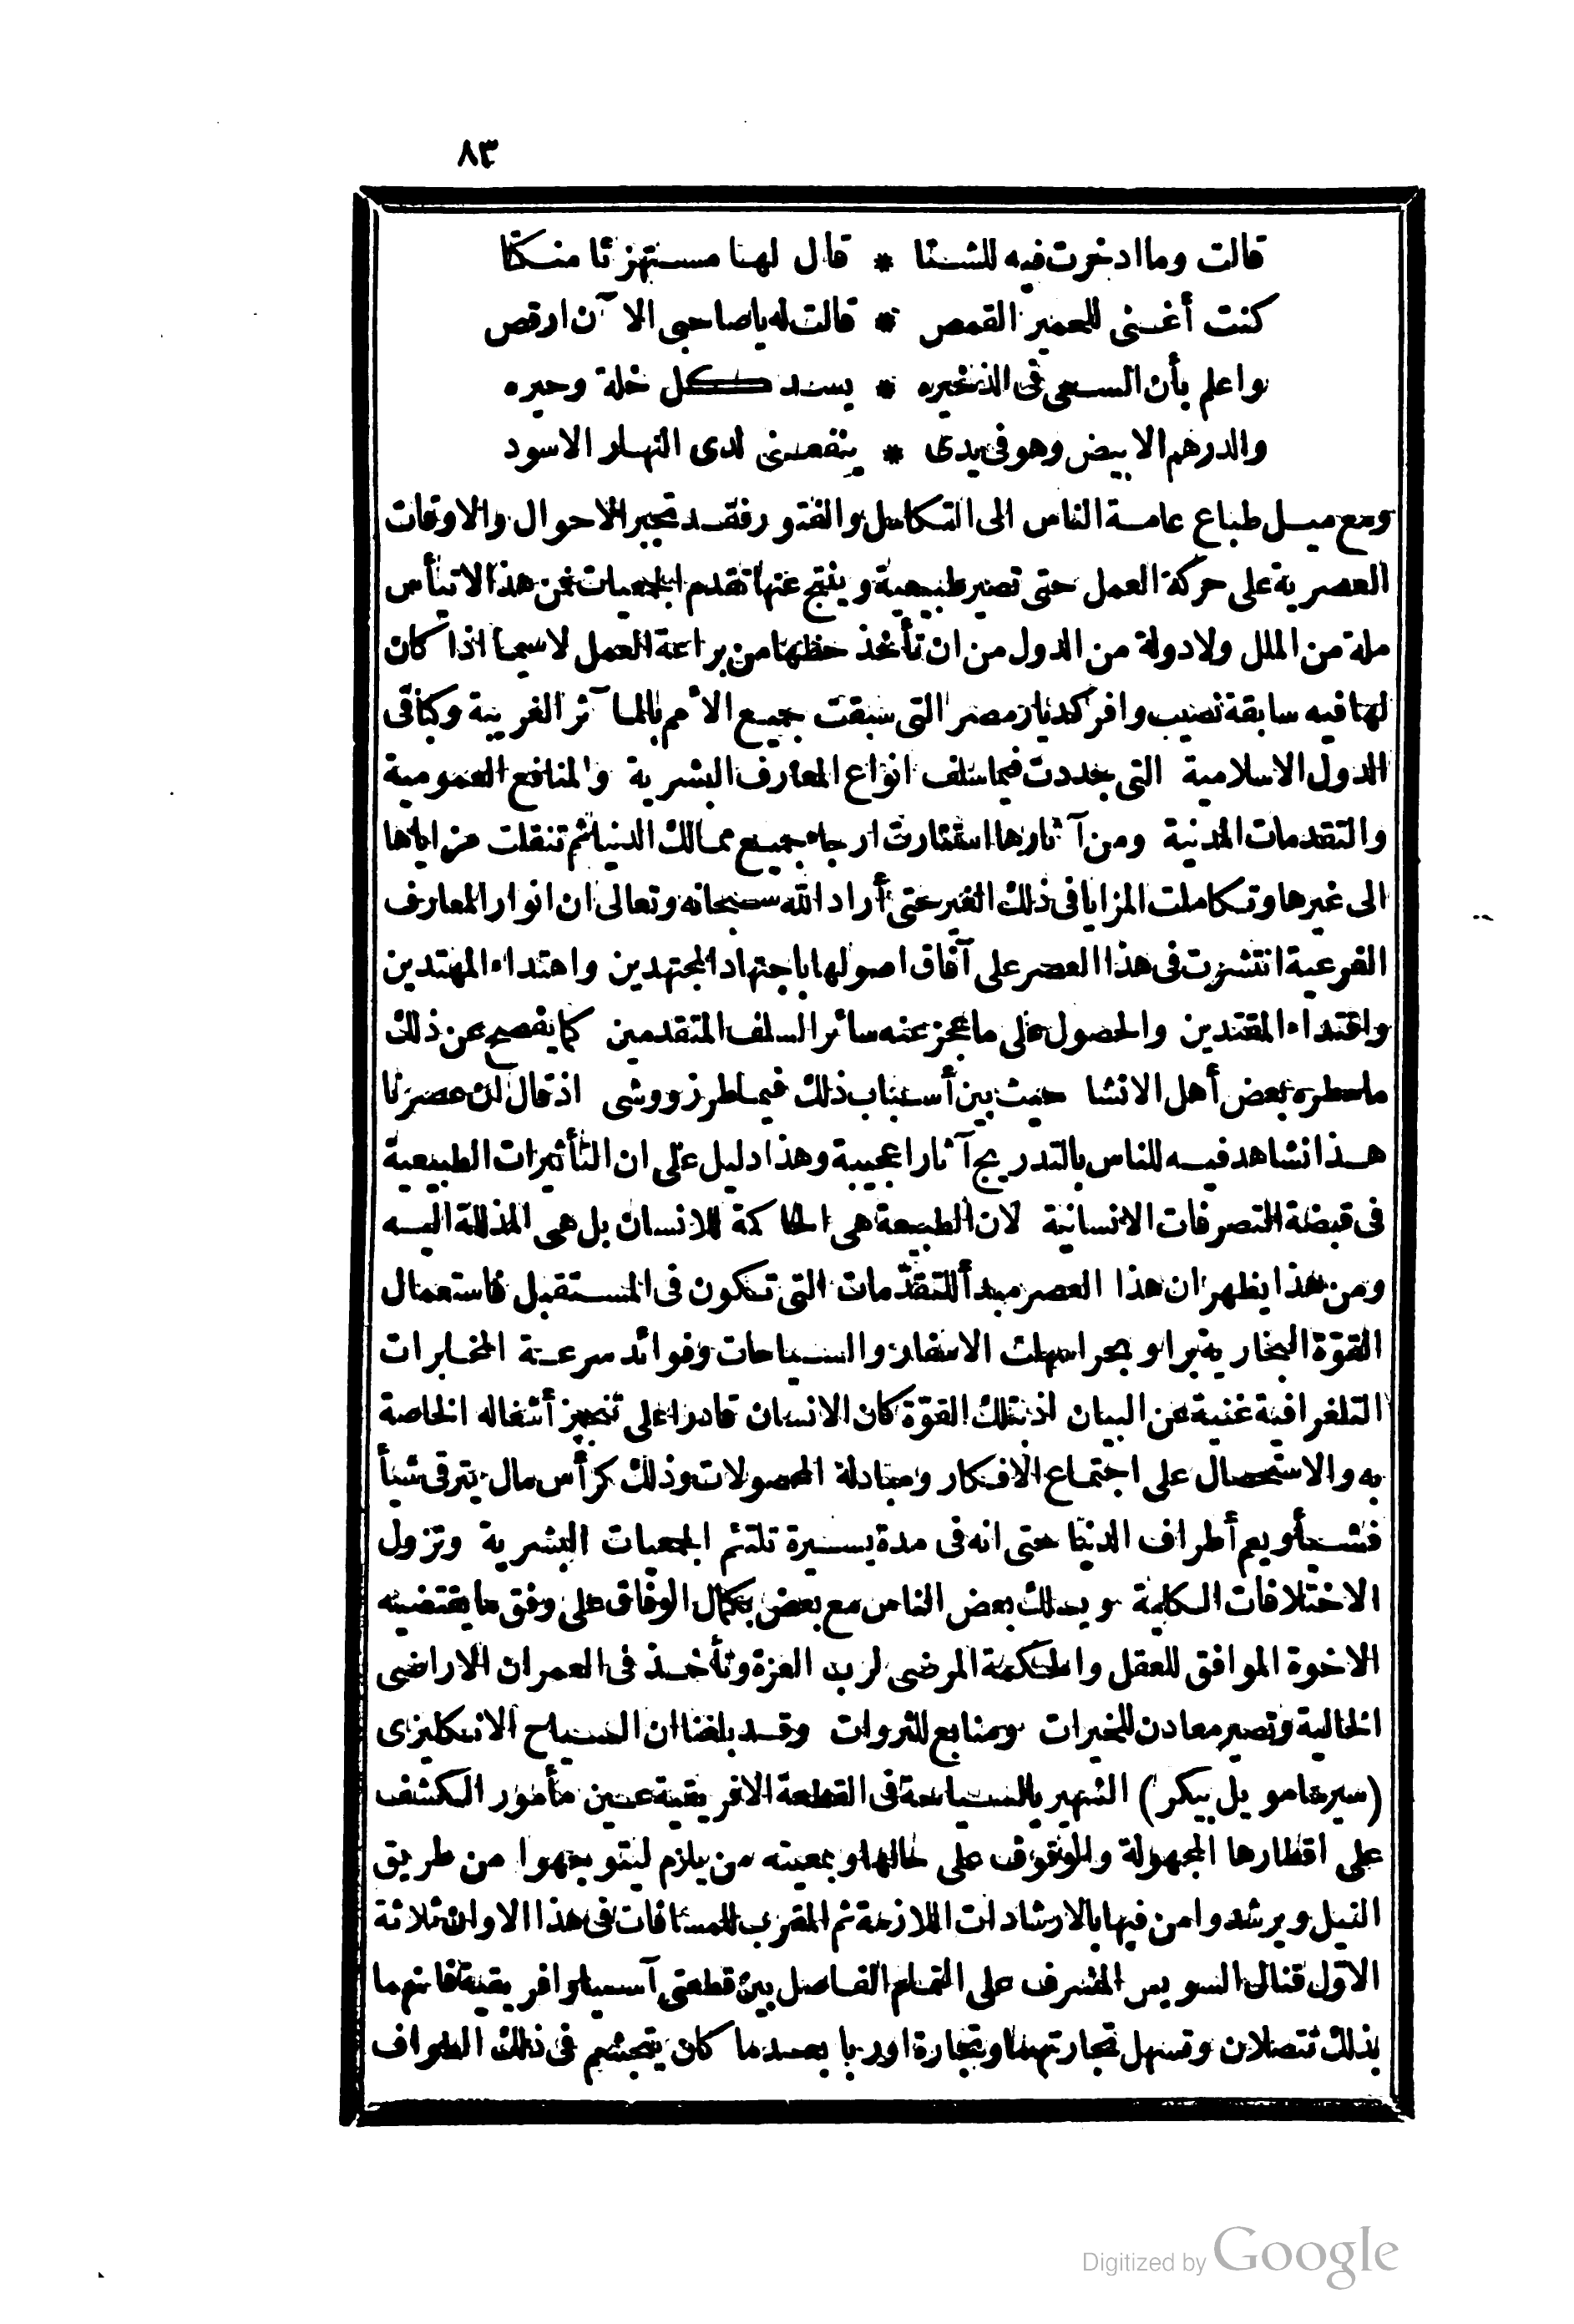 ٨٣
قالت وما ادخرت فيه للشتا * قال لها مستهزئا منكتا
كنت أغنى للحمير القمص * قالت له يا صاحبى الآن ارقص
واعلم بأن السعى فى الذخيره * يسد كل خلة وحيره
والدرهم الابيض وهو فى يدى * ينفعنى لدى النهار الاسود
ومع ميل طباع عامة الناس الى التكاسل والفتور فقد تجبر الاحوال والاوقات
العصرية على حركة العمل حتى تصير طبيعية وينتج عنها تقدم الجمعيات فمن هذا لا تيأس
ملة من الملل ولا دولة من الدول من ان تأخذ حظها من براعة العمل لا سيما اذا كان
لها فيه سابقة نصيب وافر كديار مصر التى سبقت جميع الأمم بالمآثر الغربية وكباقى
الدول الاسلامية التى جددت فيما سلف انواع المعارف البشرية والمنافع العمومية
والتقدمات المدنية ومن آثارها استنارت ارجاء جميع ممالك الدنيا ثم تنقلت مزاياها
الى غيرها وتكاملت المزايا فى ذلك الغير حتى أراد الله سبحانه وتعالى ان انوار المعارف
الفرعية انتشرت فى هذا العصر على آفاق اصولها باجتهاد المجتهدين واهتداء المهتدين
واقتداء المقتدين والحصول على ما عجز عنه سائر السلف المتقدمين كما يفصح عن ذلك
ما سطره بعض أهل الانشا حيث بين أسباب ذلك فيما طرز ووشى اذ قال ان عصرنا
هذا نشاهد فيه للناس بالتدريج آثارا عجيبة وهذا دليل على ان التأثيرات الطبيعية
فى قبضة التصرفات الانسانية لان الطبيعة هى الحاكمة للانسان بل هى المذللة اليه
ومن هذا يظهر ان هذا العصر مبدأ للتقدّمات التى تكون فى المستقبل فاستعمال
القوّة البخارية برا وبحرا سهلت الاسفار والسياحات وفوائد سرعة المخابرات
التلغرافية غنية عن البيان اذ بتلك القوّة كان الانسان قادرا على تنجيز أشغاله الخاصة
به والاستحصال على اجتماع الافكار ومبادلة المحصولات وذلك كرأس مال يترقى شيأ
فشيأ ويعم أطراف الدنيا حتى انه فى مدة يسيرة تلتئم الجمعيات البشرية وتزول
الاختلافات الكلية ويسلك بعض الناس مع بعض بكمال الوفاق على وفق ما يقتضيه
الاخوة الموافق للعقل والحكمة المرضى لرب العزة وتأخذ فى العمران الاراضى
الخالية وتصير معادن للخيرات ومنابع للثروات وقد بلغنا ان السياح الانكليزى
(سير صامويل بيكر) الشهير بالسياحة فى القطعة الافريقية عين مأمور الكشف
على اقطارها المجهولة والوقوف على حالها وبمعيته من يلزم ليتوجهوا من طريق
النيل ويرشدوا من فيها بالارشادات اللازمة ثم المقرب للمسافات فى هذا الاوان ثلاثة
الاوّل قنال السويس المشرف على التمام الفاصل بين قطعتى آسيا وافريقية فانهما
بذلك تتصلان وتسهل تجارتهما وتجارة اوربا بعد ما كان يتجشم فى ذلك الطواف
Digitized by Google